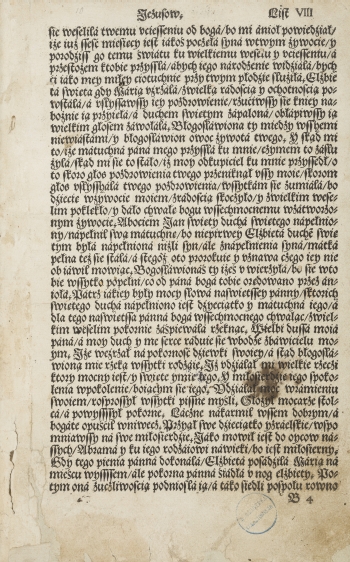 Jezusow, List VIII
sie weseliła twemu vcieſſeniu od boga/ bo mi ánioł powiedział/
iże iuż ſſeſć mieſięcy ieſt iákoś poczęła ſyná w twym żywocie/ y
porodziſſ go temu ſwiátu ku wielkiemu weſelu y vcieſſeniu/ á
przeſtożem k tobie przyſſłá/ ábych iego národzenie widziáłá/ bych
ci iáko mey miłey ciotuchnie przy twym płodzie ſłużiłá, Elżbie
tá ſwięta gdy Máriá vźrzáłá/ zwielką rádoſcią y ochotnoſcią po-
wſtáłá/ á vſłyſſawſſy iey pozdrowienie/ rzuciwſſy ſie kniey na-
bożnie ią przyięłá/ á duchem ſwiętym zápalona/ obłápiwſſy ią
wielkim głoſem záwołáłá, Błogoſłáwiona ty miedzy wſſyemi
niewiaſtámi/ y błogoſłáwion owoc żywotá twego, Y ſkąd mi
to/ iże mátuchná páná mego przyſſłá ku mnie/ czymem to záſłu
żyłá/ ſkąd mi ſie to ſtáło/ iż moy odkupiciel ku mnie przyſſedł/ o
to ſkoro głos pozdrowienia twego przeniknął vſſy moie/ ſkorom
głos vſłyſſáłá twego pozdrowienia/ wſſytkám ſie zumiáłá/ bo
dziecię w żywocie moiem/ zrádoſcią ſkoczyło/ y zwielkim weſe-
lim poklękło/ y dáło chwałę bogu wſſechmocnemu w zátworzo-
nym żywocie, Albociem Jan ſwięty duchá ſwiętego nápełnio-
ny/ nápełnił ſwą mátuchnę/ bo nie pierwey Elżbietá duchem ſwię
tym byłá nápełniona niżli ſyn/ ale z nápełnienia ſyná/ mátká
pełna teź ſie ſtáłá/ á ſtegoż oto prorokuie y vznawa czego iey nie
obiáwił mowiąc, Bogoſłáwionáś ty iżeś vwierzyłá/ bo ſie w to
bie wſſytko popełni/ co od páná bogá tobie oredowano przez án-
iołá, Pátrz iákiey były mocy ſłowá naſwiętſſey pánny/ ſktorich
ſwiętego duchá nápełniono ieſt dzyeciątko y mátuchná iego/ á
dla tego naſwiętſſá pánná bogá wſſechmocnego chwaląc/ zwiel-
kim weſelim pokornie záſpiewáłá rzeknąc, Wielbi duſſá moiá
páná/ á moy duch y me ſerce ráduie ſie w bodze zbáwicielu mo-
ym, Jże weźrzał ná pokornoſć dziewki ſwoiey/ á ſtąd błogoſłá-
wioną mie rzeką wſſytki rodzáie, Jż vdziáłał mi wielkie rzeczi
ktory mocny ieſt/ y ſwięte imię iego, Y miłoſierdzie iego ſpoko-
lenia w pokolenie boiącim ſie iego, Vdziáłał moc w ramieniu
ſwoiem/ roſproſſył wſſytki pyſſne myſli, Złożył mocarze ſtol-
cá/ á powyſſſſył pokorne, Łáczne nákarmił wſſem dobrym/ á
bogáte opuścił w niwecz, Przyiął ſwe dzieciątko yzraelſkie/ wſpo
mniawſſy ná ſwe miłoſierdzie, Jáko mowił ieſt do oycow ná-
ſſych/ Abrámá y ku iego rodzáiowi náwieki/ bo ieſt miłoſierny,
Gdy tego pienia pánná dokonáłá/ Elżbietá poſádziłá Máriá ná
mieſcu wyſſſſem/ ále pokorna pánná ſiádłá v nog elżbiety, Po-
tym oná zuczliwoſcią podnioſłá ią/ á táko ſiedli poſpołu rowno
B 4